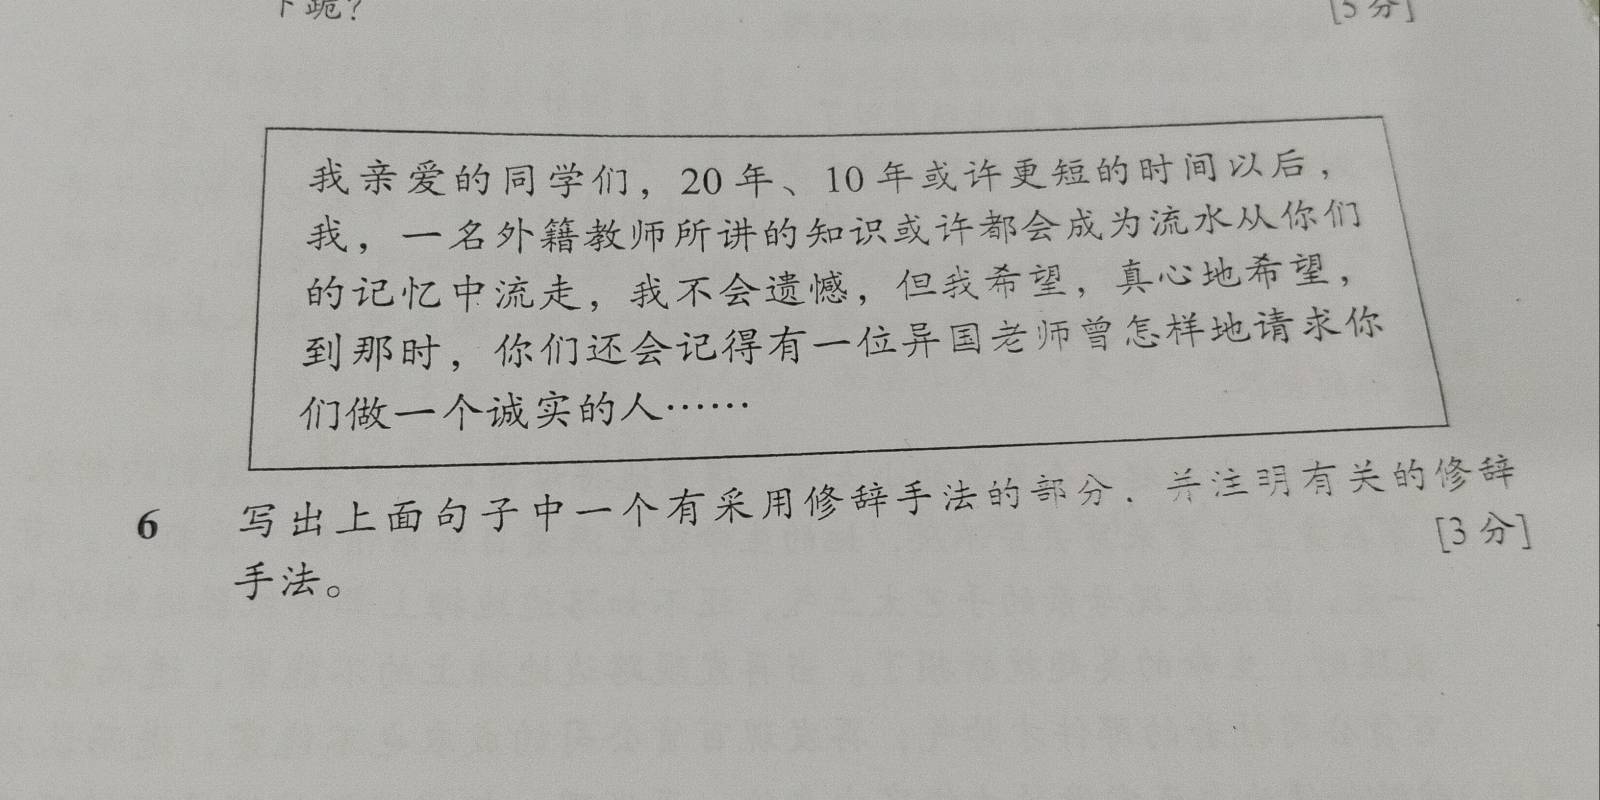 下跪?
[5 分]
我亲爱的同学们，20 年、10 年或许更短的时间以后，
我，一名外籍教师所讲的知识或许都会成为流水从你们
的记忆中流走，我不会遗憾，但我希望，真心地希望，
到那时，你们还会记得有一位异国老师曾怎样地请求你
们做一个诚实的人……
6 写出上面句子中一个有采用修辞手法的部分，并注明有关的修辞
手法。
[3 分]